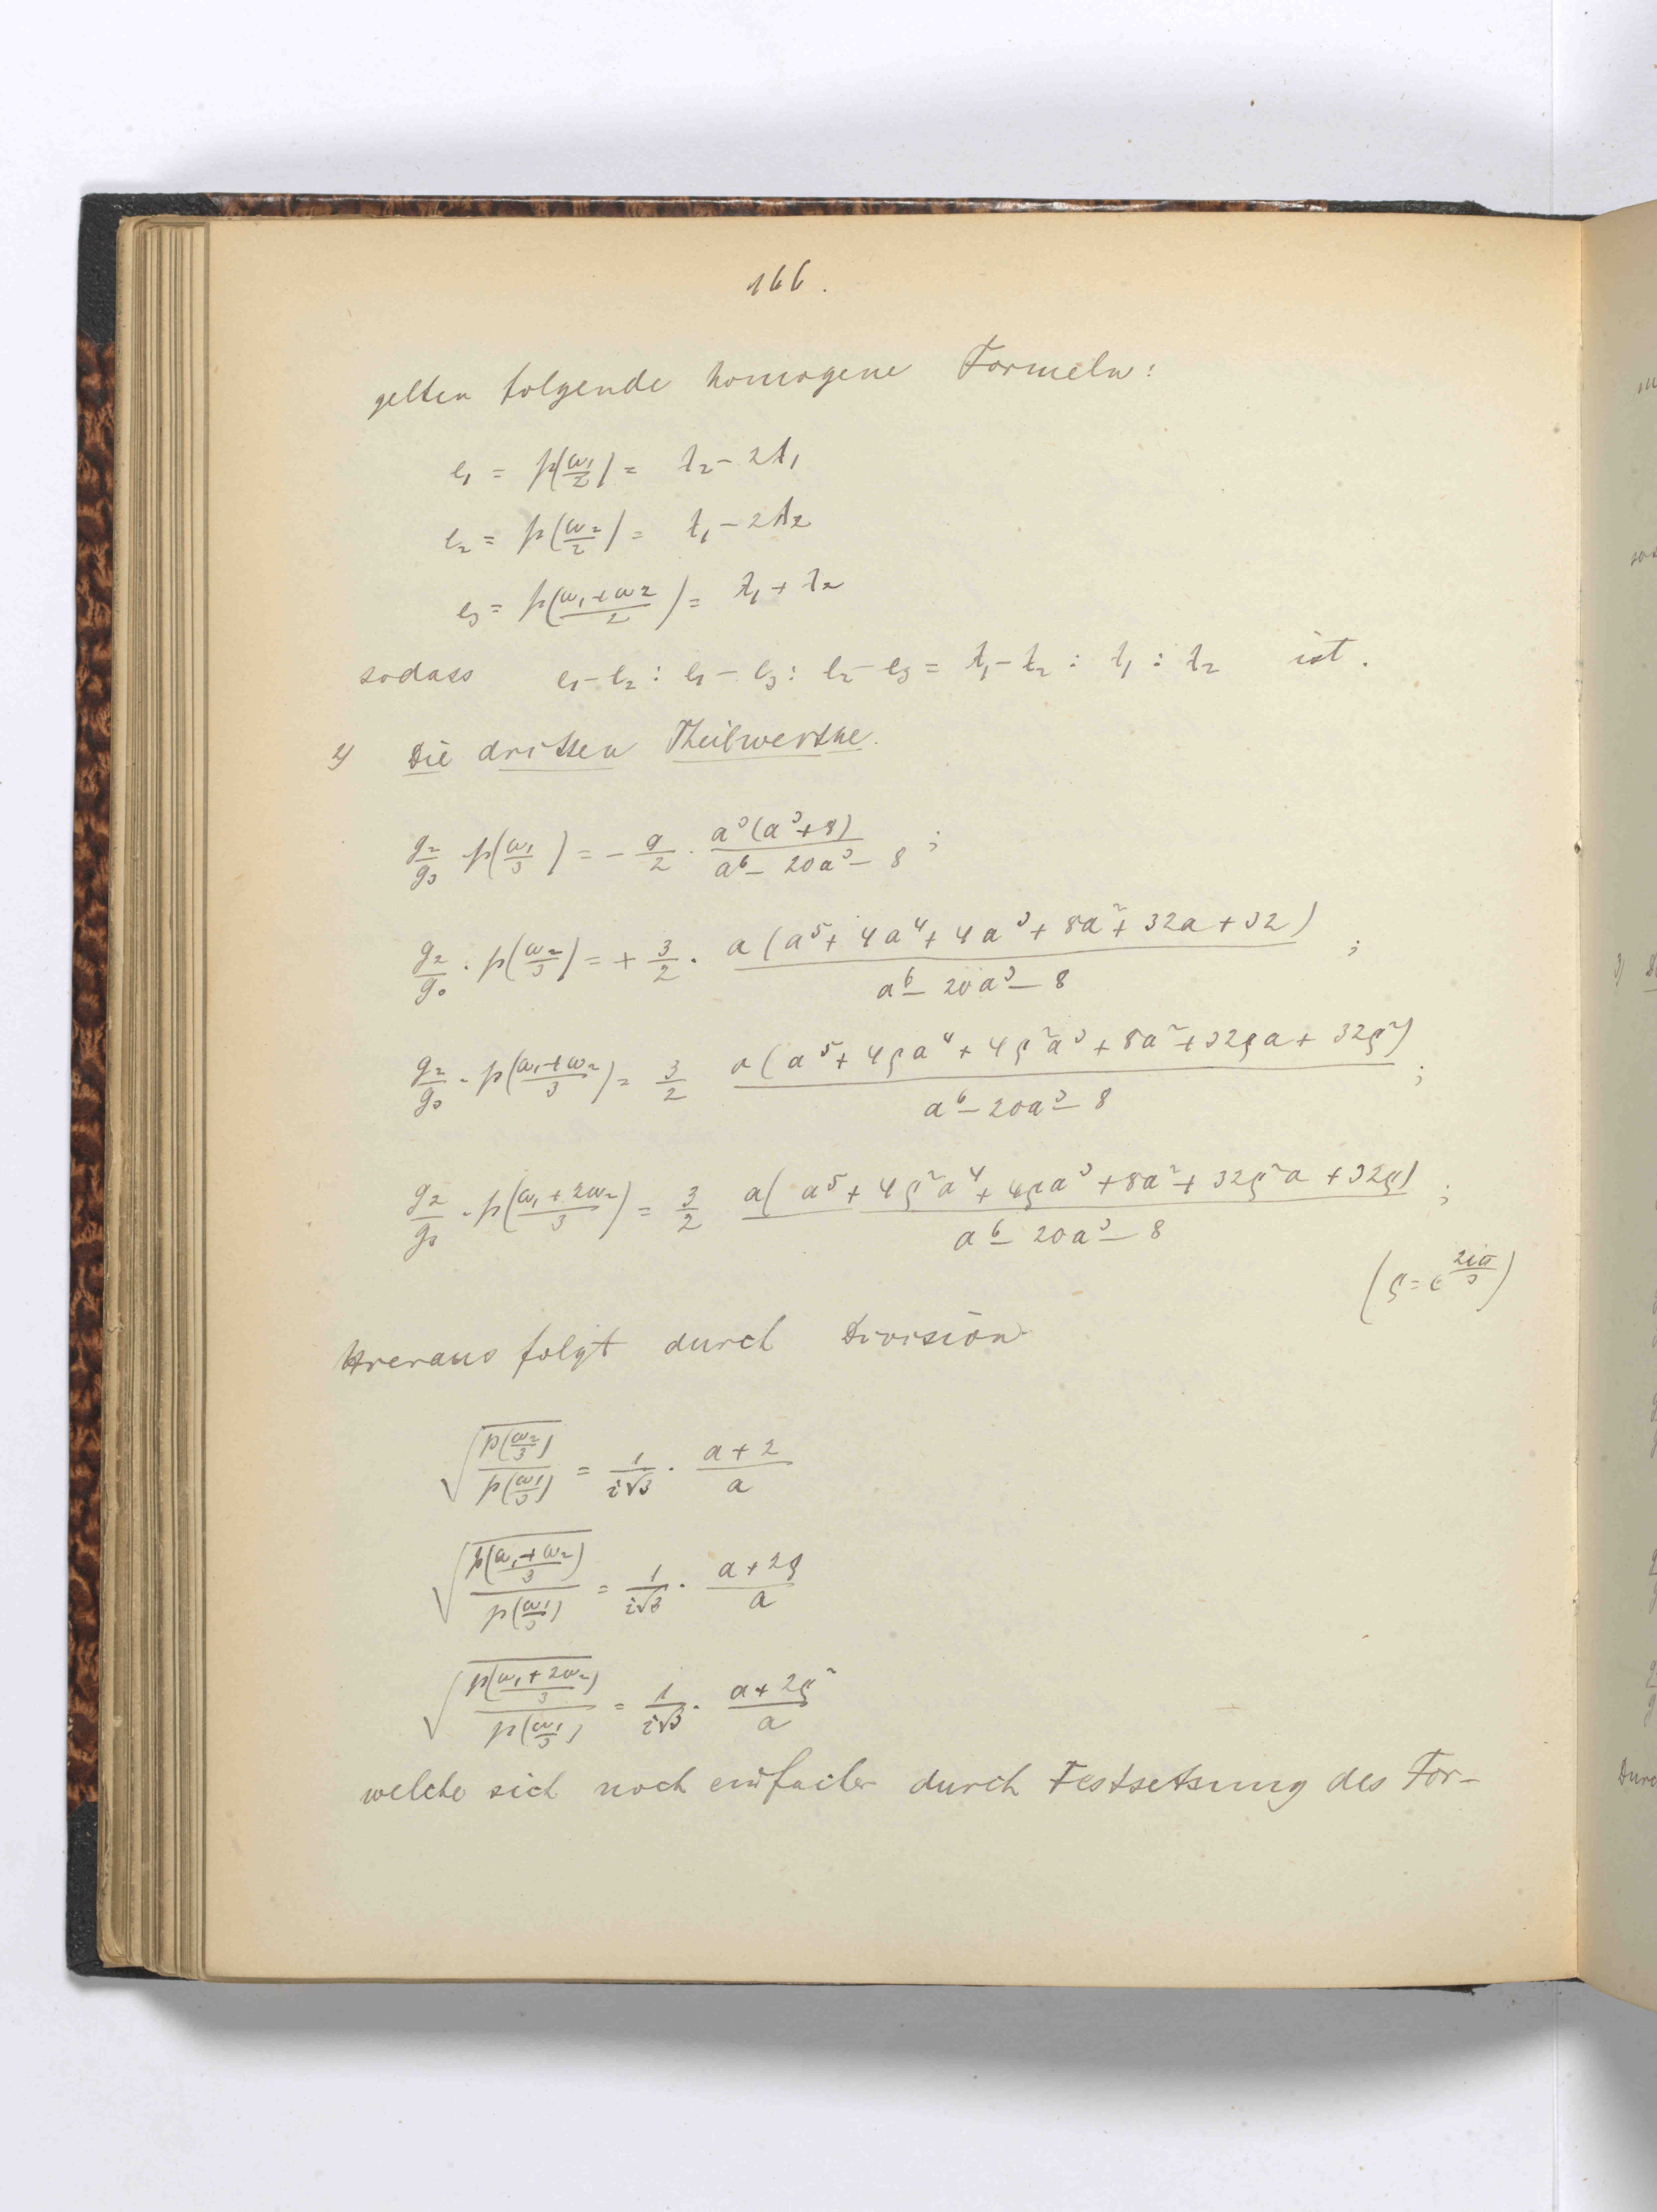 166.
gelten folgende homogene Formeln:
e₁ = p(ω₁/2) = t₂ - 2t₁
e₂ = p(ω₂/2) = t₁ - 2t₂
e₃ = p((ω₁+ω₂)/2) = t₁ + t₂
sodass e₁-e₂ : e₁-e₃ : e₂-e₃ = t₁-t₂ : t₁ : t₂ ist.
2) Die dritten Theilwerthe.
g₂/g₃ · p(ω₁/3) = - 9/2 · a³(a³+8)/(a⁶ - 20a³ - 8) ;
g₂/g₃ · p(ω₂/3) = + 3/2 · a(a⁵ + 4a⁴ + 4a³ + 8a² + 32a + 32)/(a⁶ - 20a³ - 8) ;
g₂/g₃ · p((ω₁+ω₂)/3) = 3/2 a(a⁵ + 4ρa⁴ + 4ρ²a³ + 8a² + 32ρa + 32ρ²)/(a⁶ - 20a³ - 8) ;
g₂/g₃ · p((ω₁+2ω₂)/3) = 3/2 a(a⁵ + 4ρ²a⁴ + 4ρa³ + 8a² + 32ρ²a + 32ρ)/(a⁶ - 20a³ - 8) ;
(ρ = e^(2iπ/3))
Hieraus folgt durch Division
√(p(ω₂/3)/p(ω₁/3)) = 1/(i√3) · (a+2)/a
√(p((ω₁+ω₂)/3)/p(ω₁/3)) = 1/(i√3) · (a+2ρ)/a
√(p((ω₁+2ω₂)/3)/p(ω₁/3)) = 1/(i√3) · (a+2ρ²)/a
welche sich noch einfacher durch Festsetzung des For-